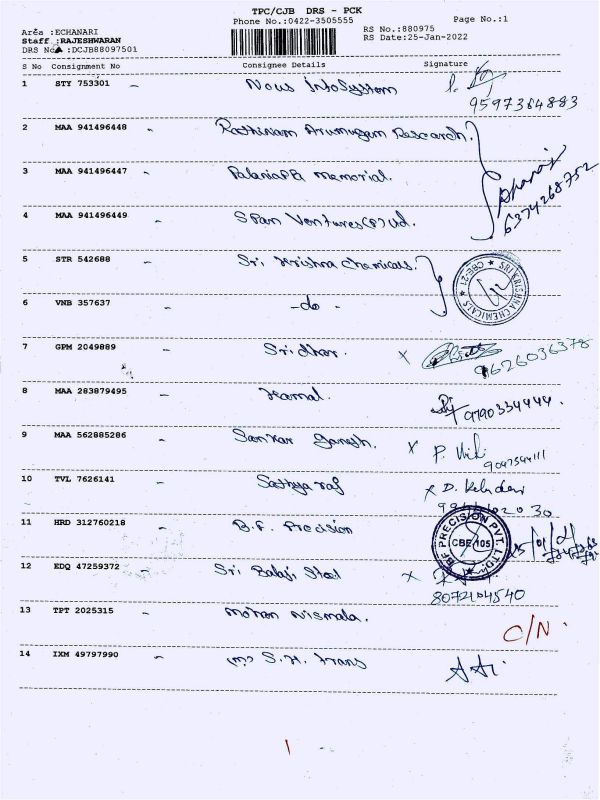 TPC/CJB DRS - PCK
Phone No.:0422-3505555 Page No.:1
Area :ECHANARI RS No.:880975
Staff :RAJESHWARAN RS Date:25-Jan-2022
DRS No :DCJB88097501
S No Consignment No Consignee Details Signature
1 STY 753301 Nous InfoSystem
9597364883
2 MAA 941496448 Rathinam Arumugam Research.
3 MAA 941496447 Palaniappa memorial.
6374268752
4 MAA 941496449 Span Ventures (P) Ltd.
5 STR 542688 Sri Krishna Chemicals.
SRI KRISHNA CHEMICALS ★ CBE-21 ★
6 VNB 357637 - do -
7 GPM 2049889 Sridhar. x
9626036378
8 MAA 283879495 Kamal. 9790334444.
9 MAA 562885286 Sankar Ganesh. x P.
10 TVL 7626141 Sathya raj x D.
11 HRD 312760218 B.F. Precision
BF PRECISION PVT. LTD. ★ CBE 105
12 EDQ 47259372 Sri Balaji Steel x
8072104540
13 TPT 2025315 mohan Nirmala. C/N.
14 IXM 49797990 S.H. Trans